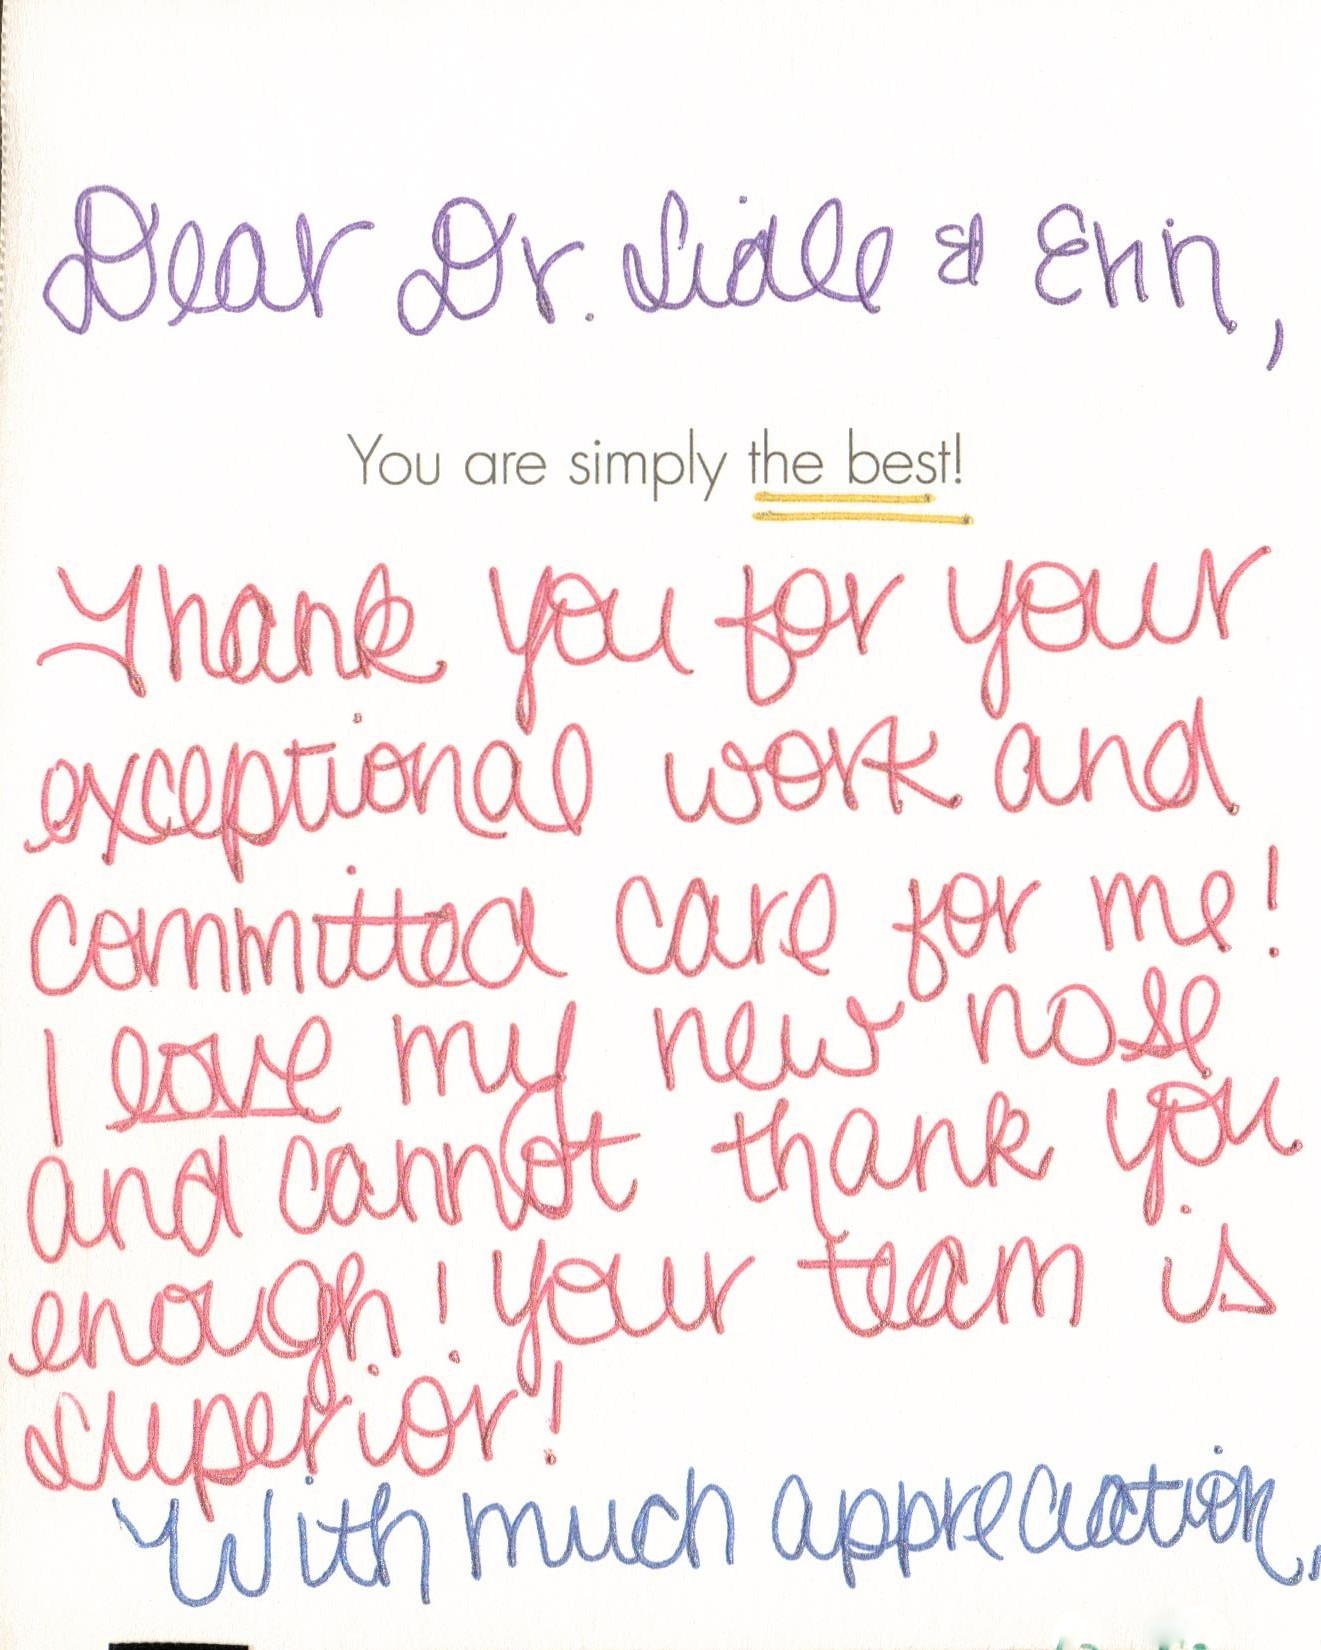 Dear Dr. Sidle & Erin,
You are simply the best!
Thank you for your
exceptional work and
committed care for me!
I love my new nose
and cannot thank you
enough! Your team is
superior!
With much appreciation,